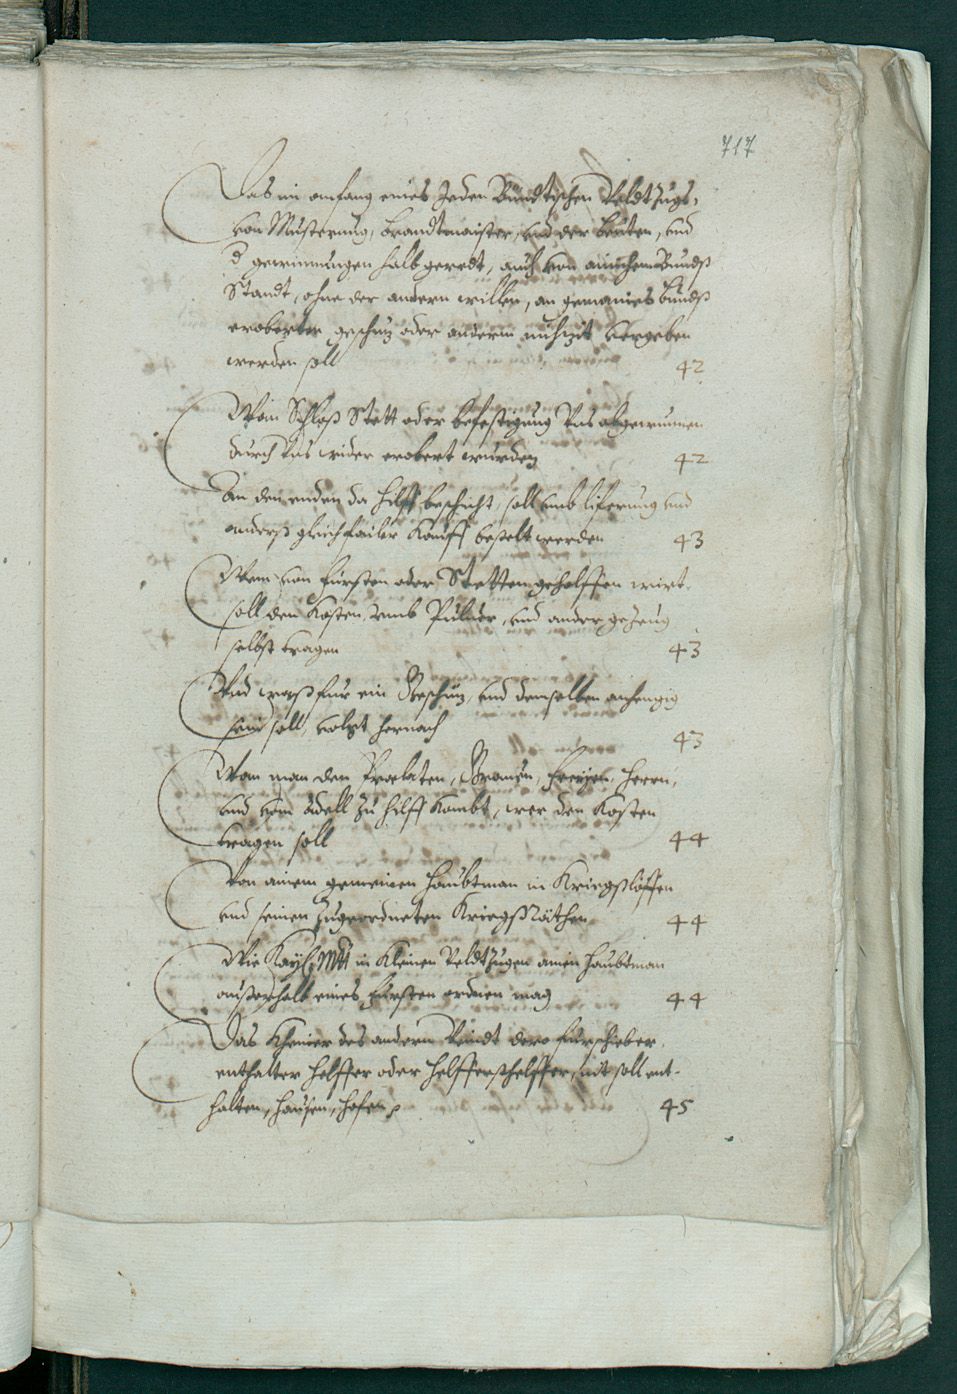 717
Das im anfang eines Jeden Bündtischen Veldtzugs,
von Musterung, brandtmaister, und der beuten, und
d gewinnungen halb geredt, auch von ainichem Bundß
Standt, ohne der andern willen, an gemaines bundß
eroberten geschuz oder anderm nichzit vergeben
werden soll 42
Wan Schloß Stett oder befestigung Uns abgewunnen
durch Uns wider erobert wurden 42
An den enden da hilff beschicht, soll umb liferung und
anderß gleich failer Kauff bestelt werden 43
Wem von fürsten oder Stetten geholffen wirt,
soll den Kosten, umb Puluer, und ander gezeug
selbst tragen 43
Und waß fur ein Geschuz, und demselben anhengig
sein soll, volgt hernach 43
Wan man den Praelaten, Grauen, freyen, Herrn,
und vom Adell zu hilff kombt, wer den Kosten
tragen soll 44
Von ainem gemeinen haubtman in Kriegßlöffen
und seinen zugeordneten Kriegßräthen 44
Wie Kayß Mtt in kleinen Veldtzugen ainen haubtman
ausserhalb eines fürsten ordnen mag 44
Das Kheiner des andern Veindt dero furschieber,
enthalter helffer oder helfferßhelffer, nit soll ent-
halten, hausen, hofen 45